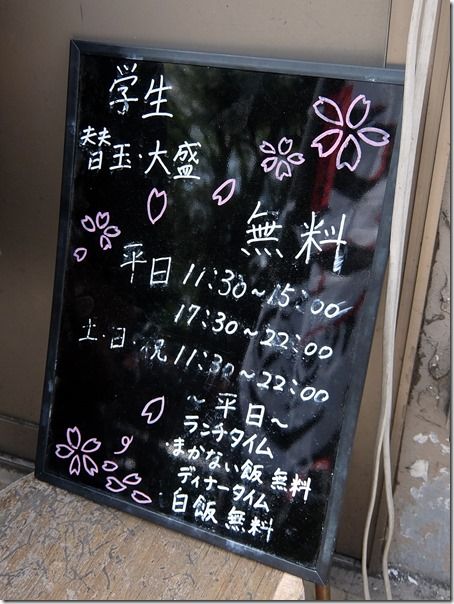 学生
替玉・大盛
無料
平日 11:30~15:00
17:30~22:00
土・日・祝 11:30~22:00
~平日~
ランチタイム
・まかない飯 無料
ディナータイム
白飯 無料